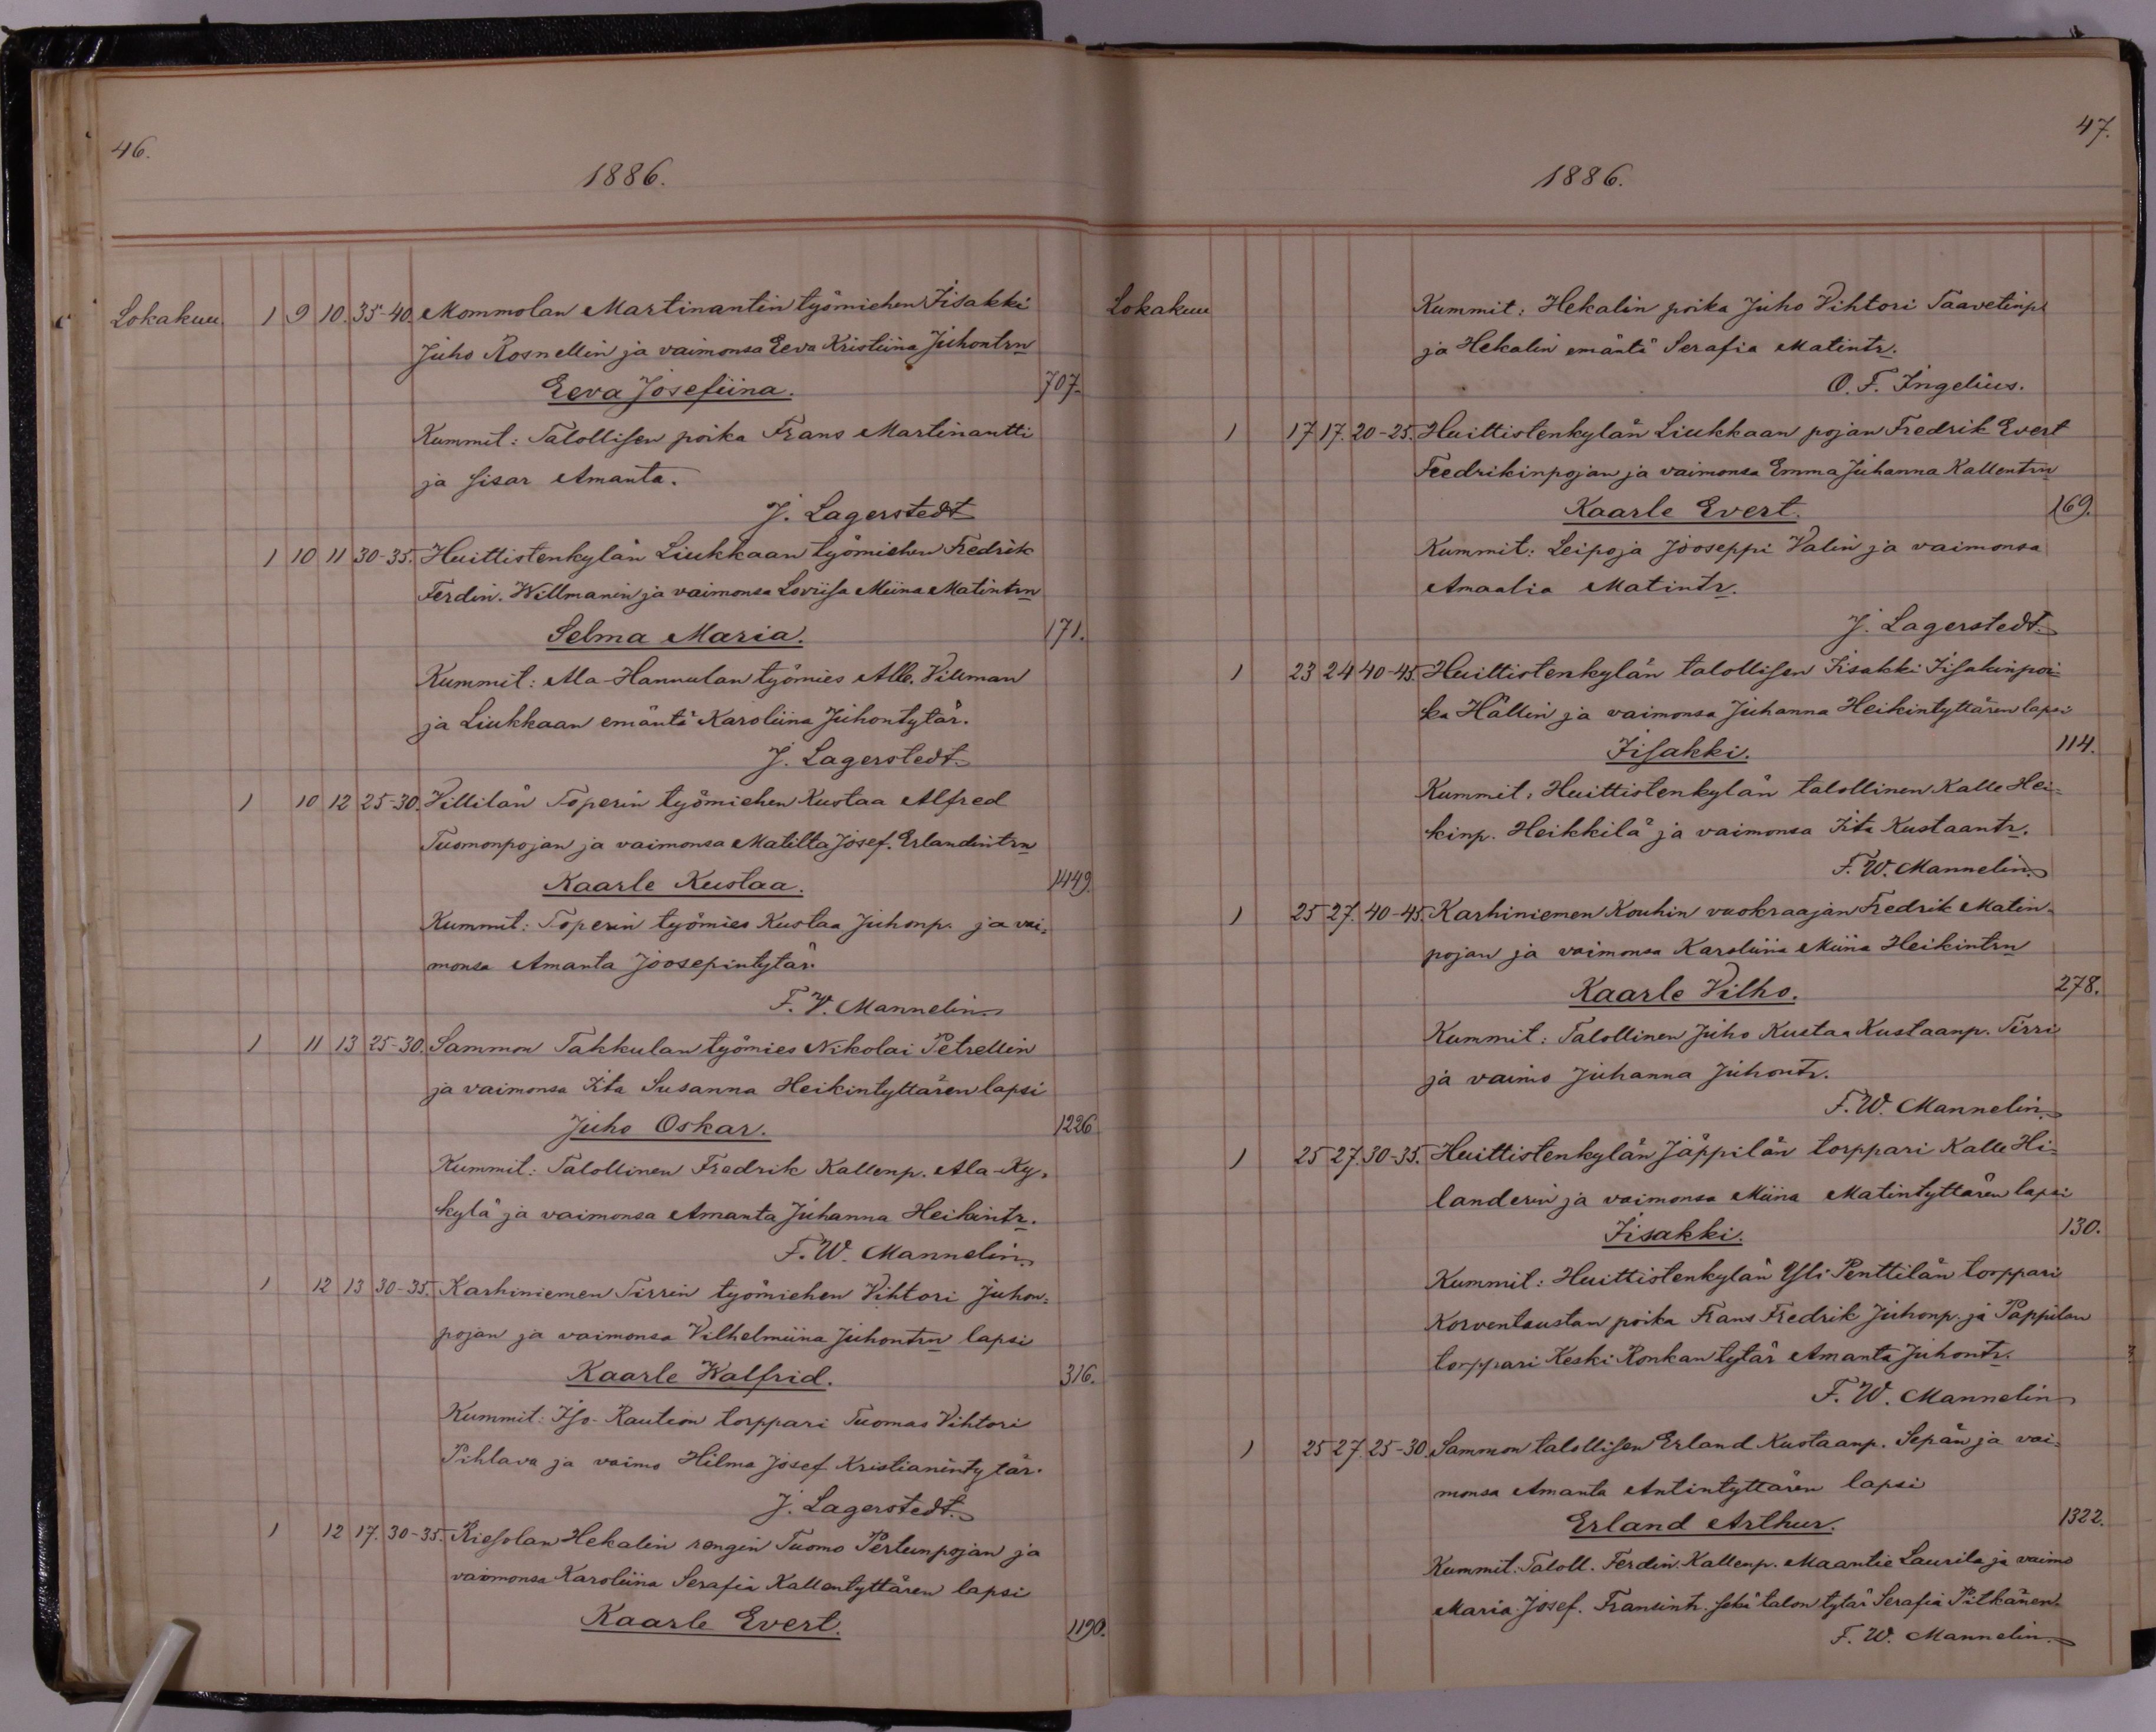 46.
1886.
Lokakuu 1 9 10. 35-40. Mommolan Martinantin työmiehen Iisakki
Juho Rosnellin ja vaimonsa Eeva Kristiina Juhontrn
Eeva Josefiina. 707.
Kummit: Talollisen poika Frans Martinantti
ja sisar Amanta.
J. Lagerstedt
1 10 11 30-35. Huittistenkylän Liukkaan työmiehen Fredrik
Ferdin. Willmanin ja vaimonsa Loviisa Miina Matintrn
Selma Maria. 171.
Kummit: Ala-Hannulan työmies Alb. Villman
ja Liukkaan emäntä Karoliina Juhontytär.
J. Lagerstedt
1 10 12 25-30. Villilän Toperin työmiehen Kustaa Alfred
Tuomonpojan ja vaimonsa Matilta Josef. Erlandintrn
Kaarle Kustaa. 1449.
Kummit: Toperin työmies Kustaa Juhonp. ja vai-
monsa Amanta Joosepintytär.
F. V. Mannelin
1 11 13 25-30. Sammon Takkulan työmies Nikolai Petrellin
ja vaimonsa Iita Susanna Heikintyttären lapsi
Juho Oskar. 1226
Kummit: Talollinen Fredrik Kallenp. Ala-Ky-
kylä ja vaimonsa Amanta Juhanna Heikintr.
F. W. Mannelin.
1 12 13 30-35. Karhiniemen Tirrin työmiehen Vihtori Juhon-
pojan ja vaimonsa Vilhelmiina Juhontrn lapsi
Kaarle Walfrid. 316.
Kummit: Iso-Raution torppari Tuomas Vihtori
Pihlava ja vaimo Hilma Josef. Kristianintytär.
J. Lagerstedt.
1 12 17. 30-35. Riesolan Hekalin rengin Tuomo Pertunpojan ja
vaimonsa Karoliina Serafia Kallentyttären lapsi
Kaarle Evert. 1190.
47.
1886.
Lokakuu Kummit: Hekalin poika Juho Vihtori Taavetinp.
ja Hekalin emäntä Serafia Matintr.
O. F. Ingelius.
1 17 17. 20-25. Huittistenkylän Liukkaan pojan Fredrik Evert
Feedrikinpojan ja vaimonsa Emma Juhanna Kallentrn
Kaarle Evert. 169.
Kummit: Leipoja Jooseppi Valin ja vaimonsa
Amaalia Matintr.
J. Lagerstedt.
1 23 24 40-45. Huittistenkylän talollisen Iisakki Iisakinpoi-
ka Hällin ja vaimonsa Juhanna Heikintyttären lapsi
Iisakki. 114.
Kummit: Huittistenkylän talollinen Kalle Hei-
kinp. Heikkilä ja vaimonsa Iita Kustaantr.
F. W. Mannelin.
1 25 27. 40-45. Karhiniemen Kouhin vuokraajan Fredrik Matin-
pojan ja vaimonsa Karoliina Miina Heikintrn
Kaarle Vilho. 278.
Kummit: Talollinen Juho Kustaa Kustaanp. Tirri
ja vaimo Juhanna Juhontr.
F. W. Mannelin.
1 25 27. 30-35. Huittistenkylän Jäppilän torppari Kalle Hi-
landerin ja vaimonsa Miina Matintyttären lapsi
Iisakki. 130.
Kummit: Huittistenkylän Yli Penttilän torppari
Korventaustan poika Frans Fredrik Juhonp. ja Pappilan
torppari Keski Ronkan tytär Amanta Juhontr.
F. W. Mannelin
1 25 27. 25-30. Sammon talollisen Erland Kustaanp. Sepän ja vai-
monsa Amanta Antintyttären lapsi
Erland Arthur. 1322.
Kummit: Taloll. Ferdin. Kallenp. Maantie Laurila ja vaimo
Maria Josef. Fransintr. sekä talon tytär Serafia Pitkänen.
F. W. Mannelin.